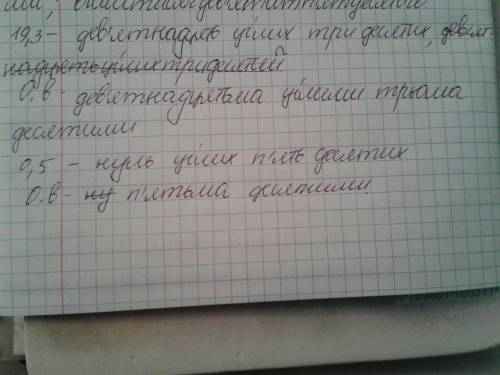 19,3 - дев'ятнадцять цілих три десятих, дев'ят-
надцять цілих три десятій
О.в - дев'ятнадцятьма цілими трьома
десятими
0,5 - нуль цілих п'ять десятих
О.в - ну п'ятьма десятими